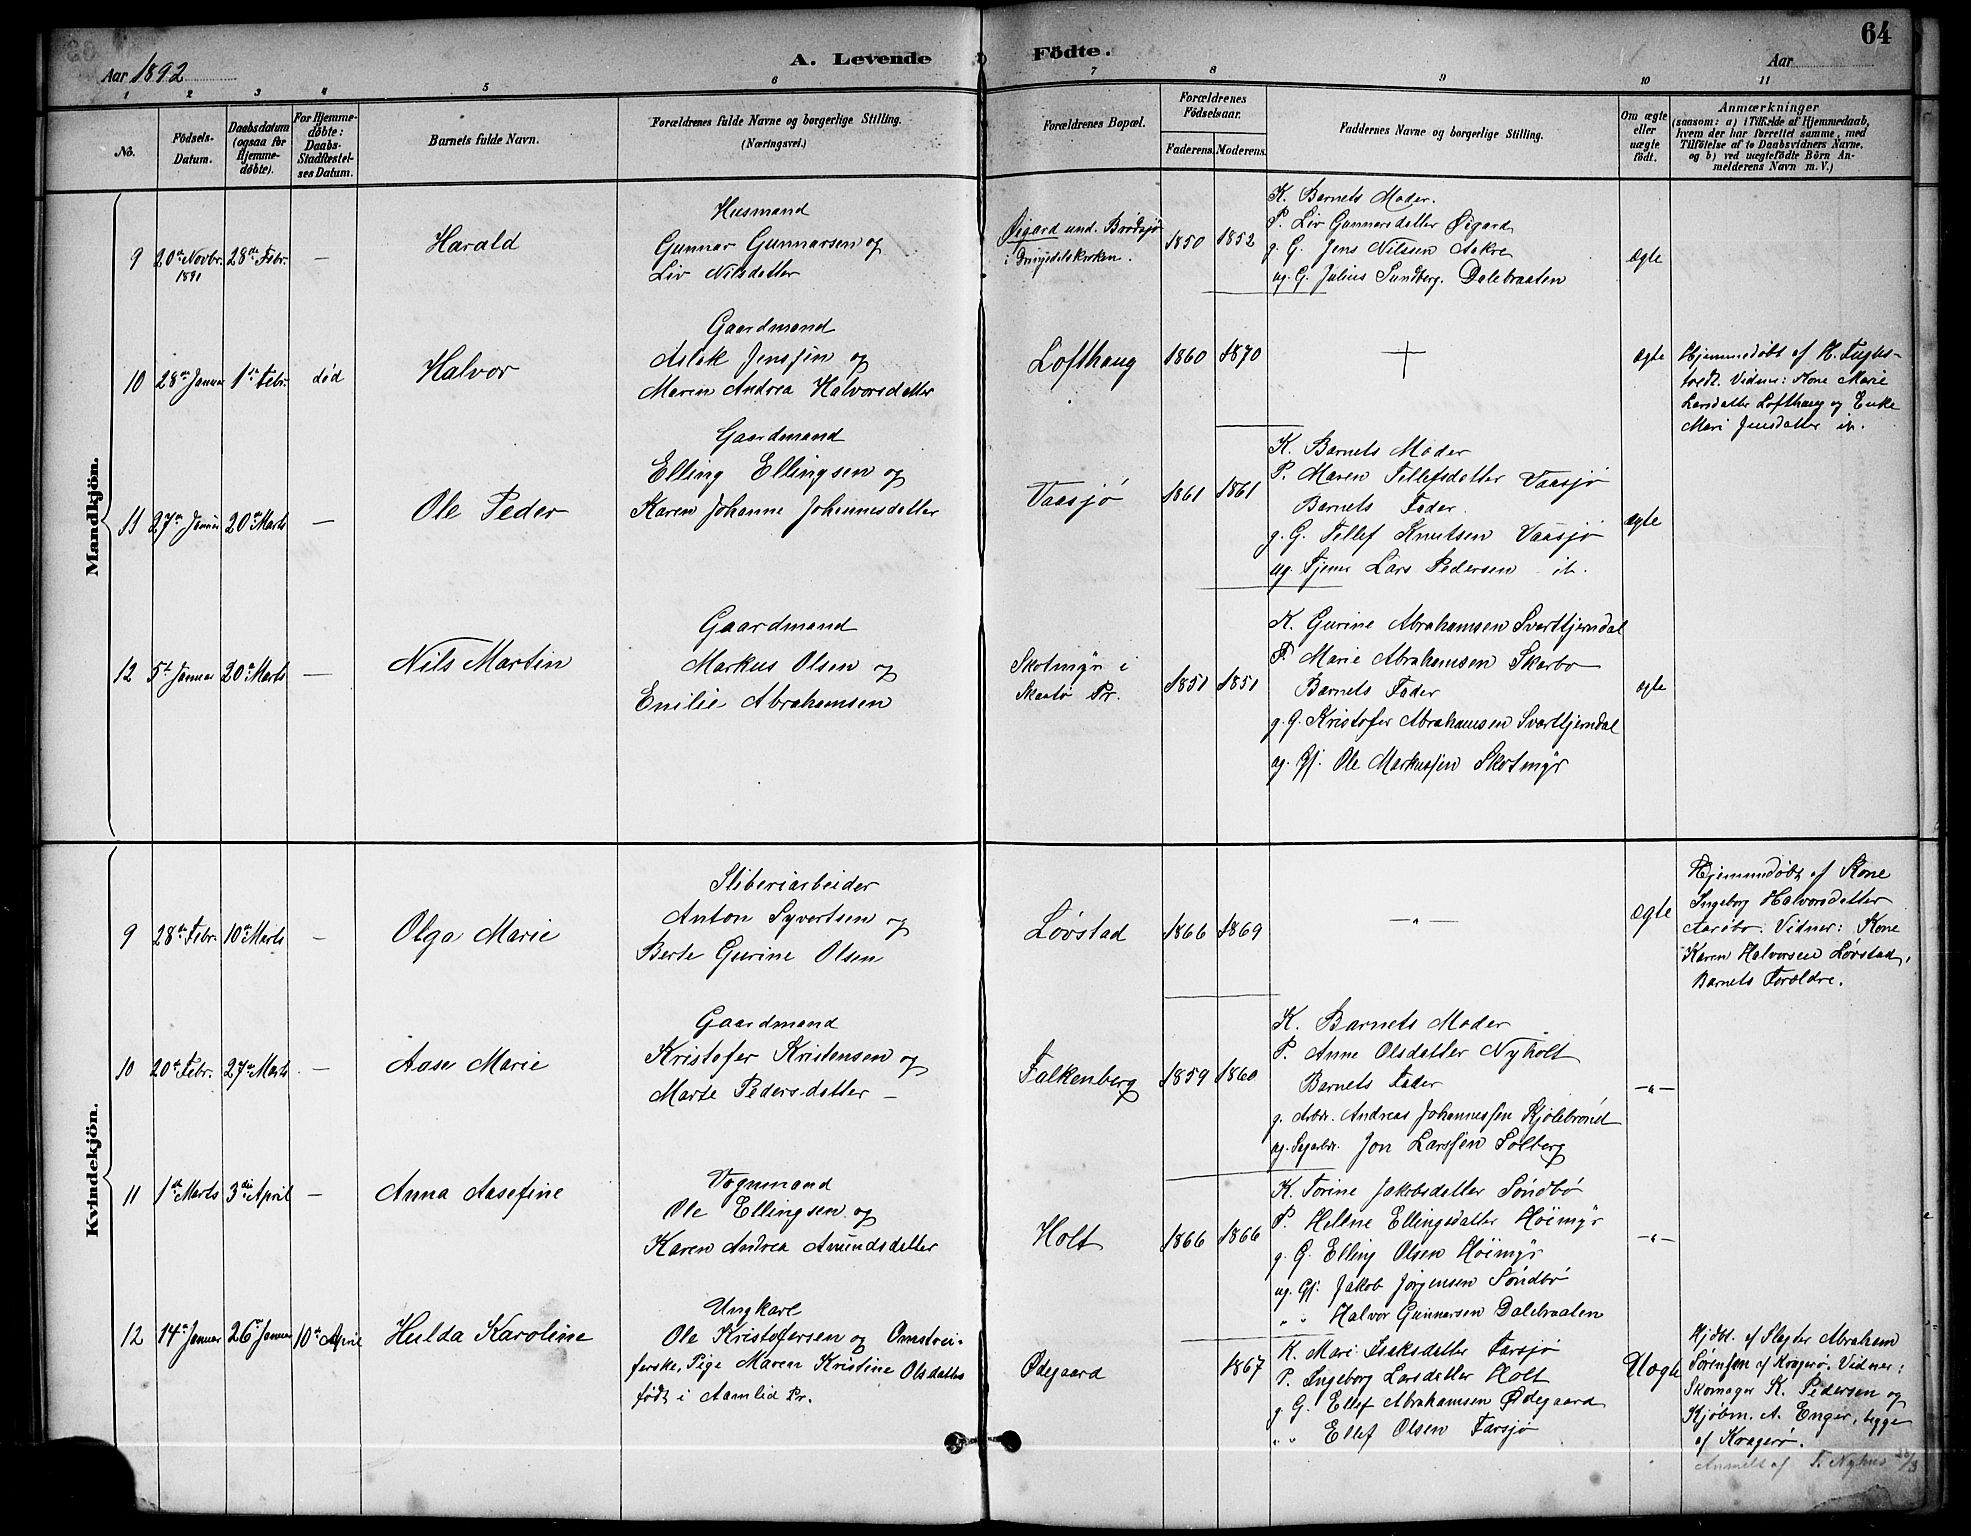 64
Aar 1892
A. Levende Födte.
Aar
1 2 3 4 5 6 7 8 9 10 11
No.
Födsels-Datum.
Daabsdatum (ogsaa for Hjemme-döbte).
For Hjemme-döbte: Daabs-Stadfæstel-ses Datum.
Barnets fulde Navn.
Forældrenes fulde Navne og borgerlige Stilling. (Næringsvei.)
Forældrenes Bopæl.
Forældrenes Födselsaar.
Faderens. Moderens.
Faddernes Navne og borgerlige Stilling.
Om ægte eller uægte födt.
Anmærkninger
(saasom: a) i Tilfælde af Hjemmedaab,
hvem der har forrettet samme, med
Tilföielse af to Daabsvidners Navne,
og b) ved uægtefödte Börn An-
melderens Navn m. V.)
Mandkjön.
9 20de Novbr. 1891 28de Febr. —
Harald
Husmand
Gunnar Gunnarsen og
Liv Nilsdatter
Øigard und. Brødsjø
i Drangedalskirken.
1850 1852
K. Barnets Moder.
P. Liv Gunnarsdatter Øigard
g. G. Jens Nilsen Aakre
ug. G. Julius Sundberg. Dalebraaten
ægte
10 28de Januar 1ste Febr. død
Halvor
Gaardmand
Aslak Jenssen og
Maren Andrea Halvorsdatter
Lofthaug
1860 1870
+
ægte
Hjemmedøbt af H. Fugle-
tvedt. Vidner: Kone Marie
Larsdatter Lofthaug og Enke
Mari Jensdatter ib.
11 27de Januar 20de Marts —
Ole Peder
Gaardmand
Elling Ellingsen og
Karen Johanne Johannesdatter
Vaasjø
1861 1861
K. Barnets Moder
P. Maren Tellefsdatter Vaasjø
Barnets Fader.
g. G. Tellef Knutsen Vaasjø
ug. Tjener Lars Pedersen ib.
ægte
12 5te Januar 20de Marts —
Nils Martin
Gaardmand
Markus Olsen og
Emilie Abrahamsen
Skotmyr i
Skaatø Pr.
1851 1851
K. Gurine Abrahamsen Svarttjerndal
P. Marie Abrahamsen Skarbo
Barnets Fader
g. G. Kristofer Abrahamsen Svarttjerndal
ug. Gj. Ole Markussen Skotmyr
ægte
Kvindekjön.
9 28de Febr. 10de Marts —
Olga Marie
Sliberiarbeider
Anton Syvertsen og
Berte Gurine Olsen
Løvstad
1866 1869
—"—
ægte
Hjemmedøbt af Kone
Ingeborg Halvorsdatter
Aarøbo. Vidner: Kone
Karen Halvorsen Løvstad,
Barnets Forældre.
10 20de Febr. 27de Marts —
Aase Marie
Gaardmand
Kristofer Kristensen og
Marte Pedersdatter —
Falkenberg
1859 1860
K. Barnets Moder
P. Anne Olsdatter Nyholt
Barnets Fader
g. Arbdr. Andreas Johannessen Kjølebrønd
ug. Sagarbdr. Jon Larssen Solberg
—"—
11 1ste Marts 3die April —
Anna Aasefine
Vognmand
Ole Ellingsen og
Karen Andrea Amundsdatter
Holt
1866 1866
K. Torine Jakobsdatter Søndbø
P. Hellene Ellingsdatter Høimyr
g. G. Elling Olsen Høimyr
ug. Gj. Jakob Jørgensen Søndbø
" " Halvor Gunnarsen Dalebraaten
—"—
12 14de Januar 26de Januar 10de April
Hulda Karoline
Ungkarl
Ole Kristofersen og Omstrei-
ferske, Pige Maren Kristine Olsdatter
født i Aamlid Pr.
Ødegaard
1867
K. Mari Isaksdatter Farsjø
P. Ingeborg Larsdatter Holt
g. G. Ellef Abrahamsen Ødegaard
" " Ellef Olsen Farsjø
Uægte
Hjdbt. af Slagter Abraham
Sørensen af Kragerø. Vidner:
Skomager K. Pedersen og
Kjøbm. A. Enger, begge
af Kragerø.
Anmeldt af T. Nyhus